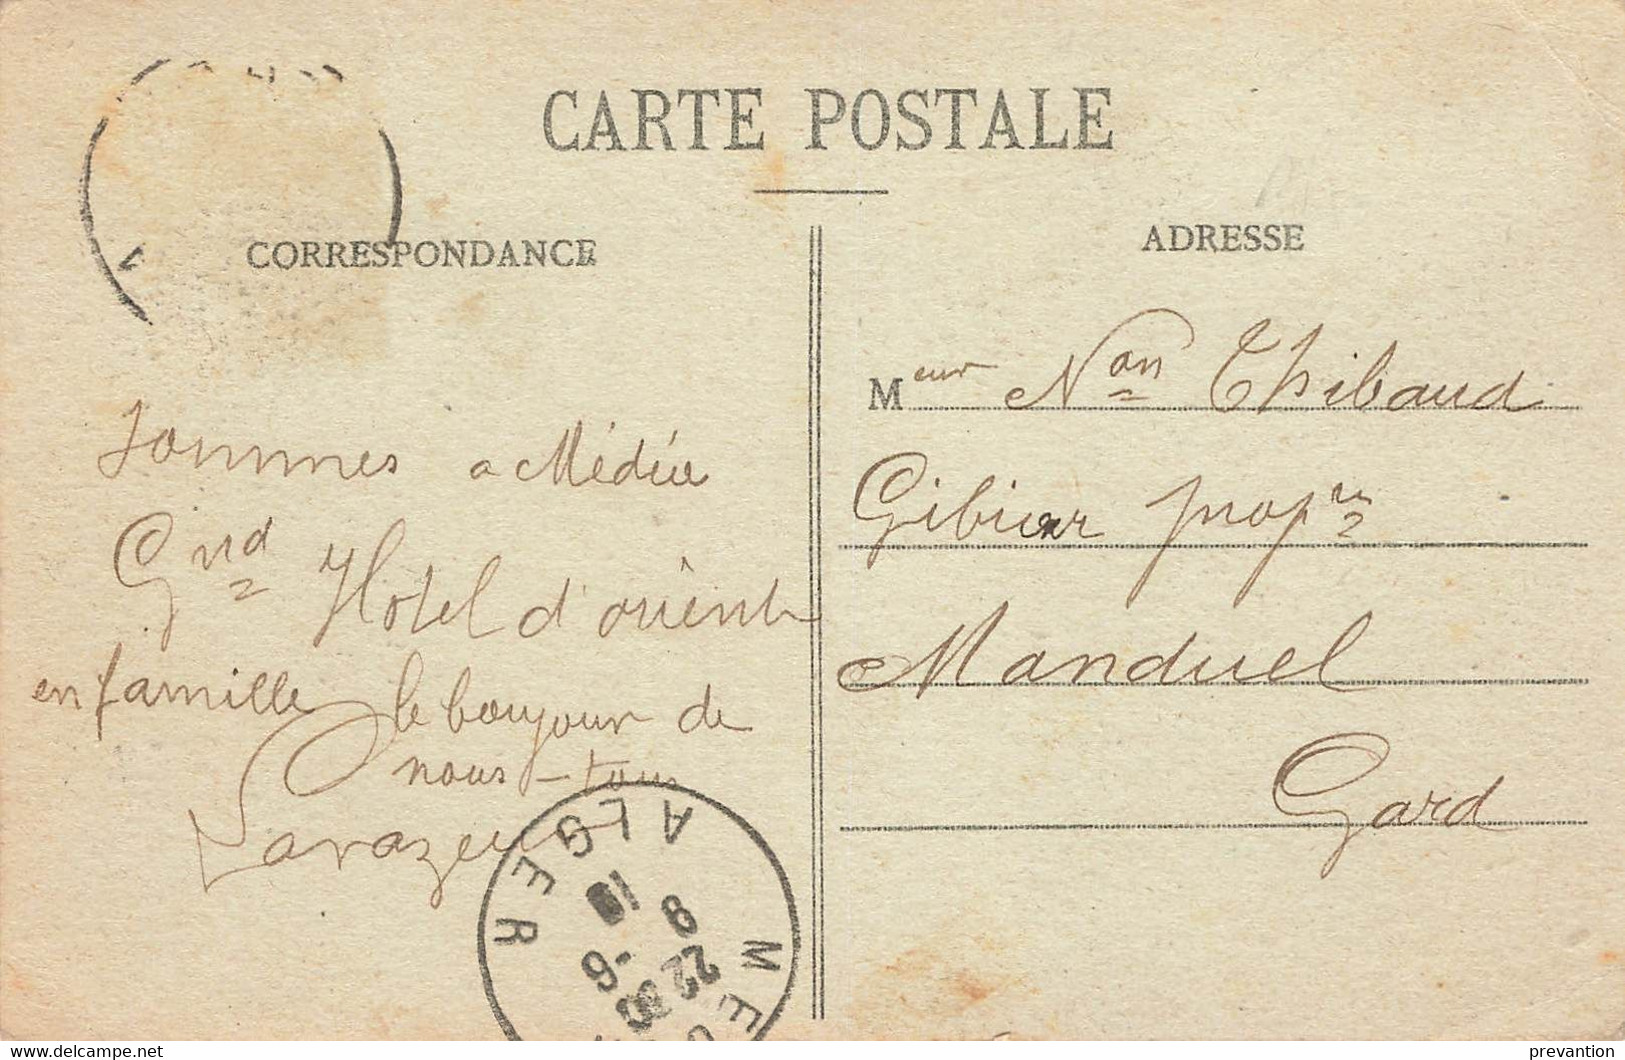 CARTE POSTALE
CORRESPONDANCE
Sommes a Médéa
Gnd Hotel d'orient
en famille le bonjour de
nous-tous
ADRESSE
Meur Non Thibaud
Gibier propre
Manduel
Gard
ALGER
9
22
prevantion